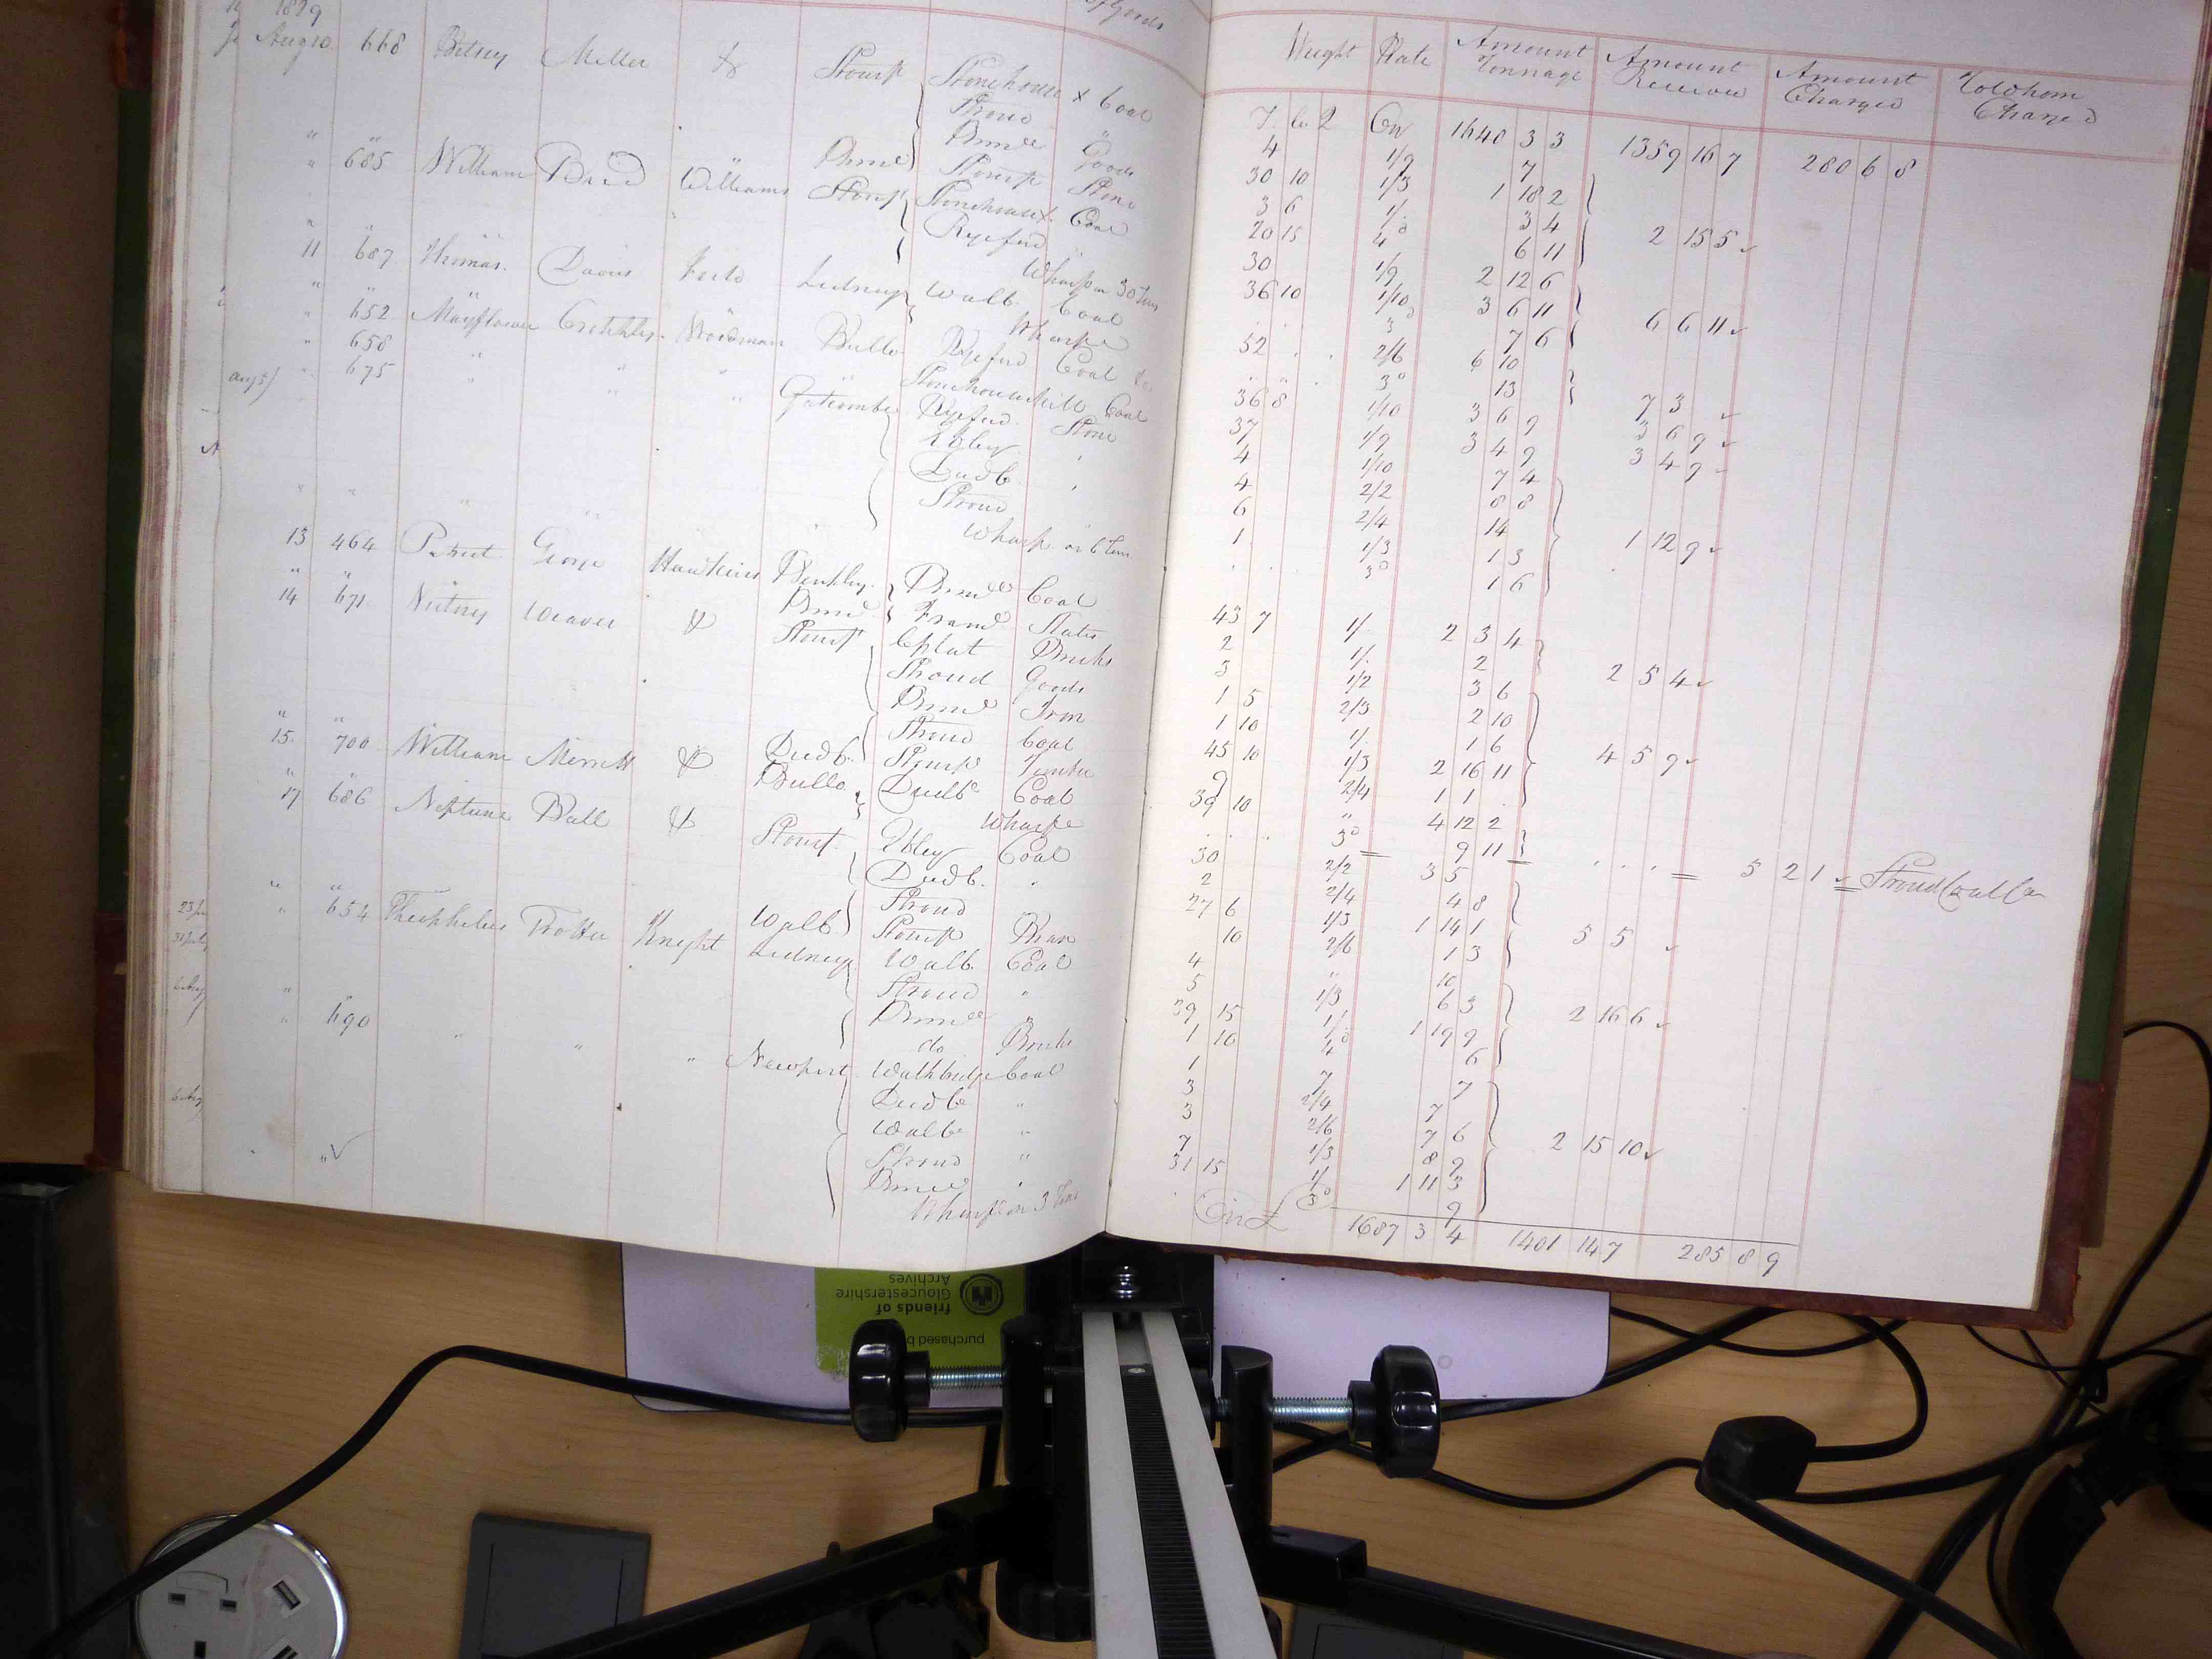 1829
Weight Rate Amount Tonnage Amount Received Amount Charged To Whom Charged
T. C. Q On 1640 3 3 1359 16 7 280 6 8
Aug 10 668 Betsey Miller Do Stourp Stonehouse x Coal 4 1/9 7
Stroud " 30 10 1/3 1 18 2
Brimde Goods 3 6 1/. 3 4
" " Brimd Stourp Stone 20 15 4d 6 11 2 15 5
" 685 William Bird Williams Stourp Stonehouse x Coal 30 1/9 2 12 6
Ryeford " 36 10 1/10 3 6 11
" " Wharfe on 30 Tons 3d 7 6 6 6 11
11 687 Thomas Davis Field Lidney Walb. Coal 52 2/6 6 10
" " Wharfe 3d 13 7 3
" 652 Mayflower Critchley Woodman Bullo Ryeford Coal 36 8 1/10 3 6 9 3 6 9
" 658 " " " " Stonehouse Mill Coal 37 1/9 3 4 9 3 4 9
Aug 5 " 675 " " " Gatcombe Ryeford Stone 4 1/10 7 4
Ebley " 4 2/2 8 8
Dudb. " 6 2/4 14
Stroud 1 1/3 1 3
" " " " " Wharfe on 6 Tons 3d 1 6 1 12 9
13 464 Patriot George Hawkins Berkley Brimde Coal 43 7 1/. 2 3 4
" " Brimd Framd Slates 2 1/. 2 2 5 4
14 671 Nutney Weaver Do Stourp Cplat Bricks 3 1/2 3 6
Stroud Goods 1 5 2/3 2 10
Brimd Iron 1 10 1/. 1 6
Stroud Coal 45 10 1/3 2 16 11
" " Dudb. Stourp Timber 9 2/4 1 1 4 5 9
15 700 William Merrett Do Bullo Dudbe Coal 39 10 " 4 12 2
" " Wharfe 3d 9 11 5 2 1 Stroud Coal Co
17 686 Neptune Ball Do Stourp Ebley Coal 30 2/2 3 5
Dudb. " 2 2/4 4 8
Stroud 27 6 1/3 1 14 1
" " Walb. Stourp Bran 10 2/6 1 3 5 5
" 654 Theophilus Trotter Knight Lidney Walb. Coal 4 " 10
Stroud " 5 1/3 6 3
Brimde " 39 15 1/. 1 19 9
" " do Bricks 1 10 4d 6 2 16 6
" 690 " " " Newport Wallbridge Coal 1 7 7
Dudbe " 3 2/4 7
Walbe " 3 2/6 7 6
Stroud " 7 1/3 8 9
Brimde " 31 15 1/ 1 11 3
" Wharfe on 3 Tons 3d 9 2 15 10
On £ 1687 3 4 1401 14 7 285 8 9
purchased b
friends of
Gloucestershire
Archives